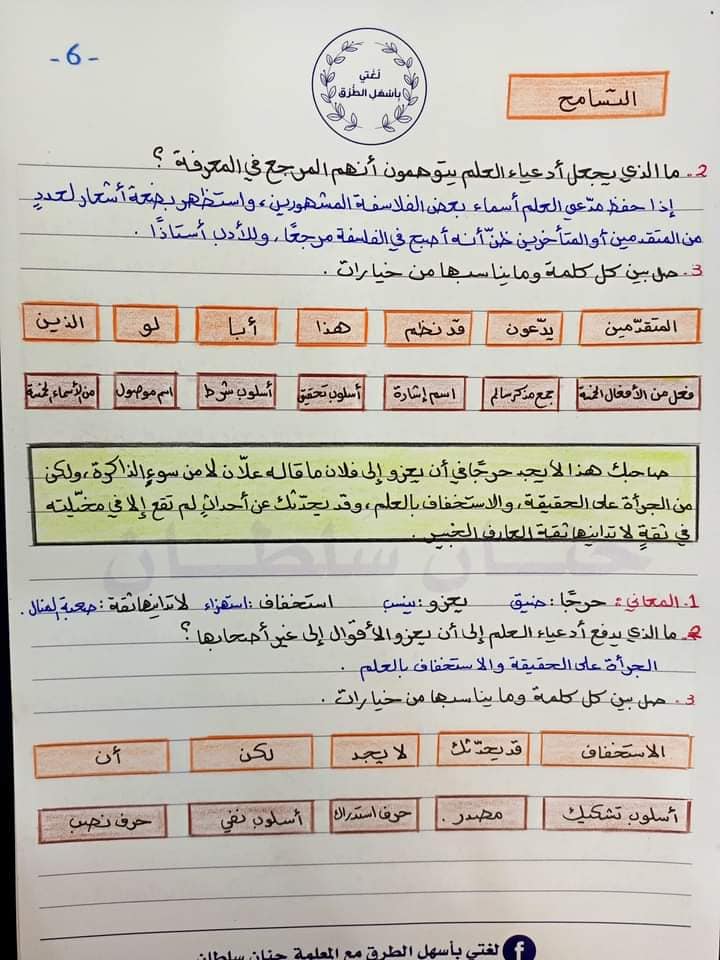 -6-
لغتي
بأسهل الطرق
التسامح
2. ما الذي يجعل أدعياء العلم يتوهمون أنهم المرجع في المعرفة ؟
إذا حفظ مدّعي العلم أسماء بعض الفلاسفة المشهورين، واستظهر بضعة أشعار لعددٍ
من المتقدمين أو المتأخرين ظنّ أنه أصبح في الفلسفة مرجعًا، وللأدب أستاذًا .
3. صل بين كل كلمة وما يناسبها من خيارات .
المتقدّمين يدّعون قد نظم هذا أبا لو الذين
فعل من الأفعال الخمسة جمع مذكر سالم اسم إشارة أسلوب تحقيق أسلوب شرط اسم موصول من الأسماء الخمسة
صاحبك هذا لا يجد حرجًا في أن يعزو إلى فلان ما قاله علّان لا من سوءِ الذاكرة، ولكن
من الجرأة على الحقيقة، والاستخفاف بالعلم، وقد يحدّثك عن أحداثٍ لم تقع إلا في مخيّليته
في ثقةٍ لا تدانيها ثقة العارف الخبير .
حنان سلطان
1. المعاني: حرجًا: ضيق يعزو: ينسب استخفاف: استهزاء لا تدانيها ثقة: صعبة المنال .
2. ما الذي يدفع أدعياء العلم إلى أن يعزو الأقوال إلى غير أصحابها ؟
الجرأة على الحقيقة والاستخفاف بالعلم .
3. صل بين كل كلمة وما يناسبها من خيارات .
الاستخفاف قد يحدّثك لا يجد لكن أن
أسلوب تشكيك مصدر . حرف استدراك أسلوب نفي حرف نصب
لغتي بأسهل الطرق مع المعلمة حنان سلطان